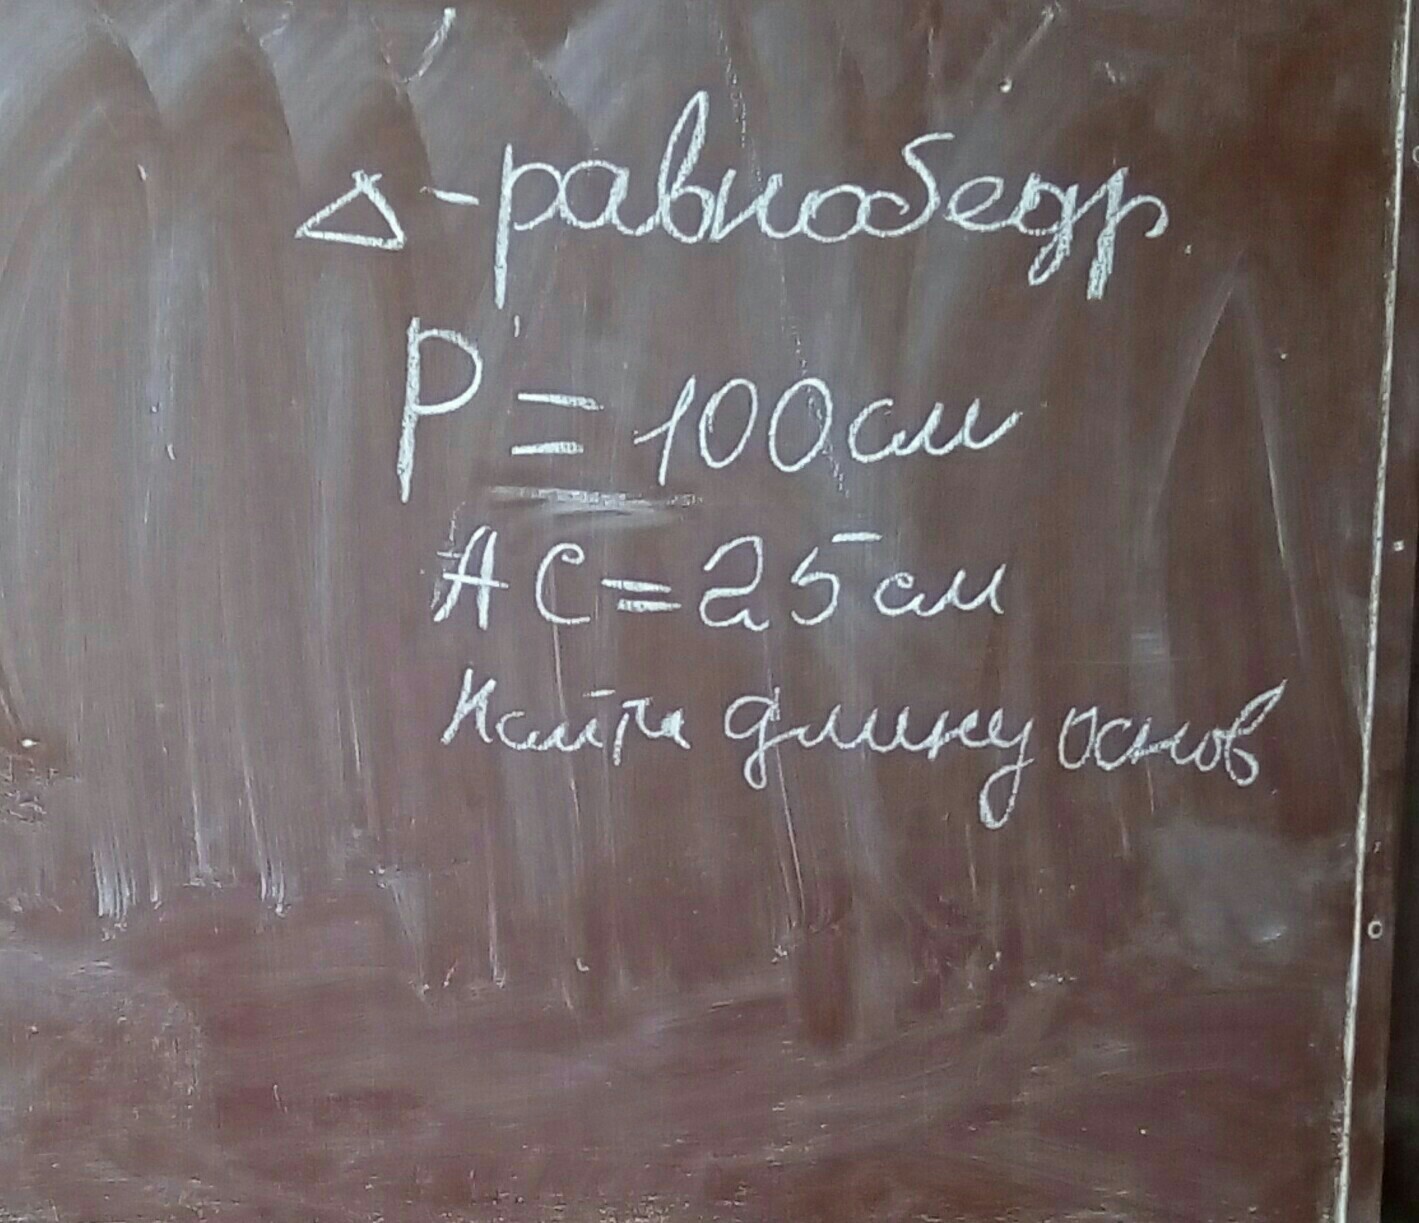 Δ-равнобедр.
P = 100см
AC = 25см
Найти длину основ